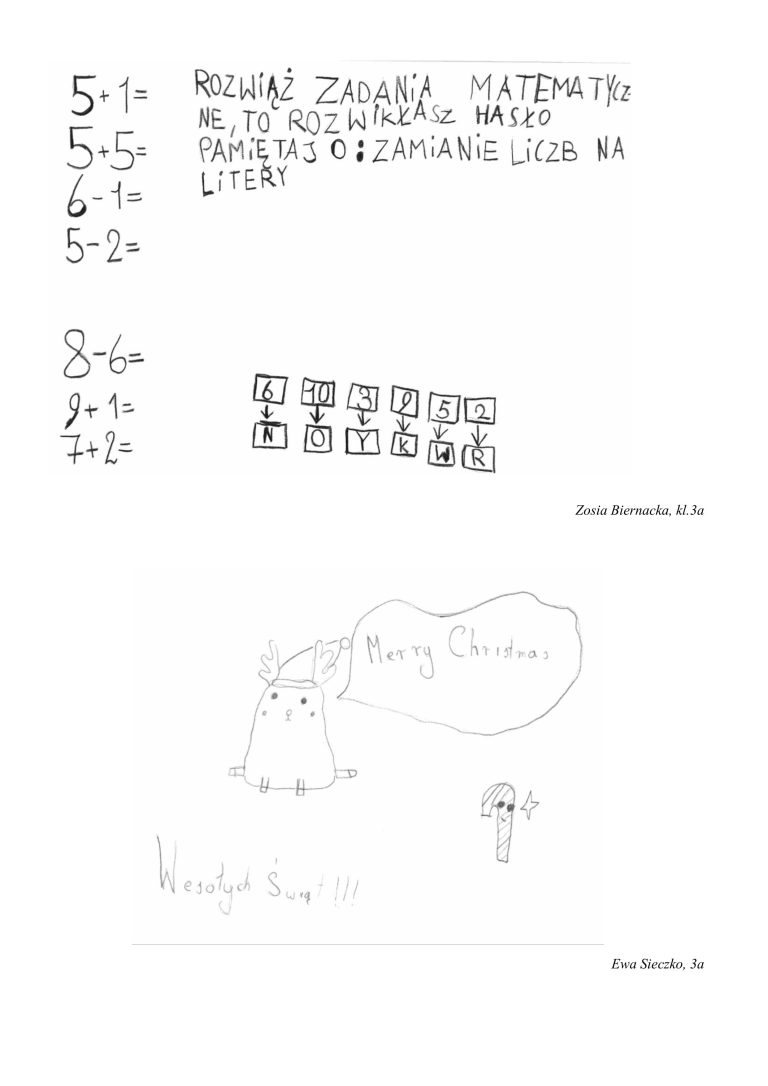 5+1=
5+5=
6-1=
5-2=
8-6=
9+1=
7+2=
ROZWIĄŻ ZADANIA MATEMATYCZ
NE, TO ROZWIKŁASZ HASŁO
PAMIĘTAJ O: ZAMIANIE LICZB NA
LITERY
6 10 3 9 5 2
N O Y K W R
Zosia Biernacka, kl.3a
Merry Christmas
Wesołych Świąt !!!
Ewa Sieczko, 3a